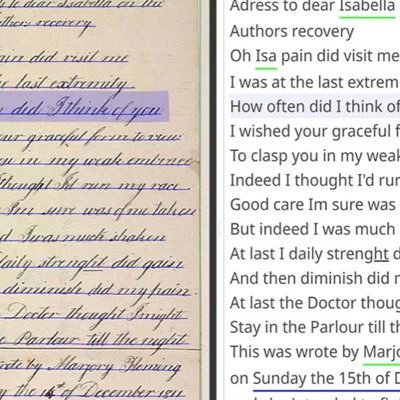 to dear Isabella on the
recovery
did visit me
last extremity
did I think of you
graceful form to view
in my weak embrace
thought I'd run my race
I'm sure was of me taken
I was much shaken
daily strenght did gain
diminish did my pain
Doctor thought I might
Parlour till the night
by Marjory Fleming
the 15th of December 1811
Adress to dear Isabella
Authors recovery
Oh Isa pain did visit me
I was at the last extrem
How often did I think of
I wished your graceful f
To clasp you in my weak
Indeed I thought I'd run
Good care Im sure was
But indeed I was much
At last I daily strenght d
And then diminish did m
At last the Doctor thoug
Stay in the Parlour till th
This was wrote by Marjo
on Sunday the 15th of D